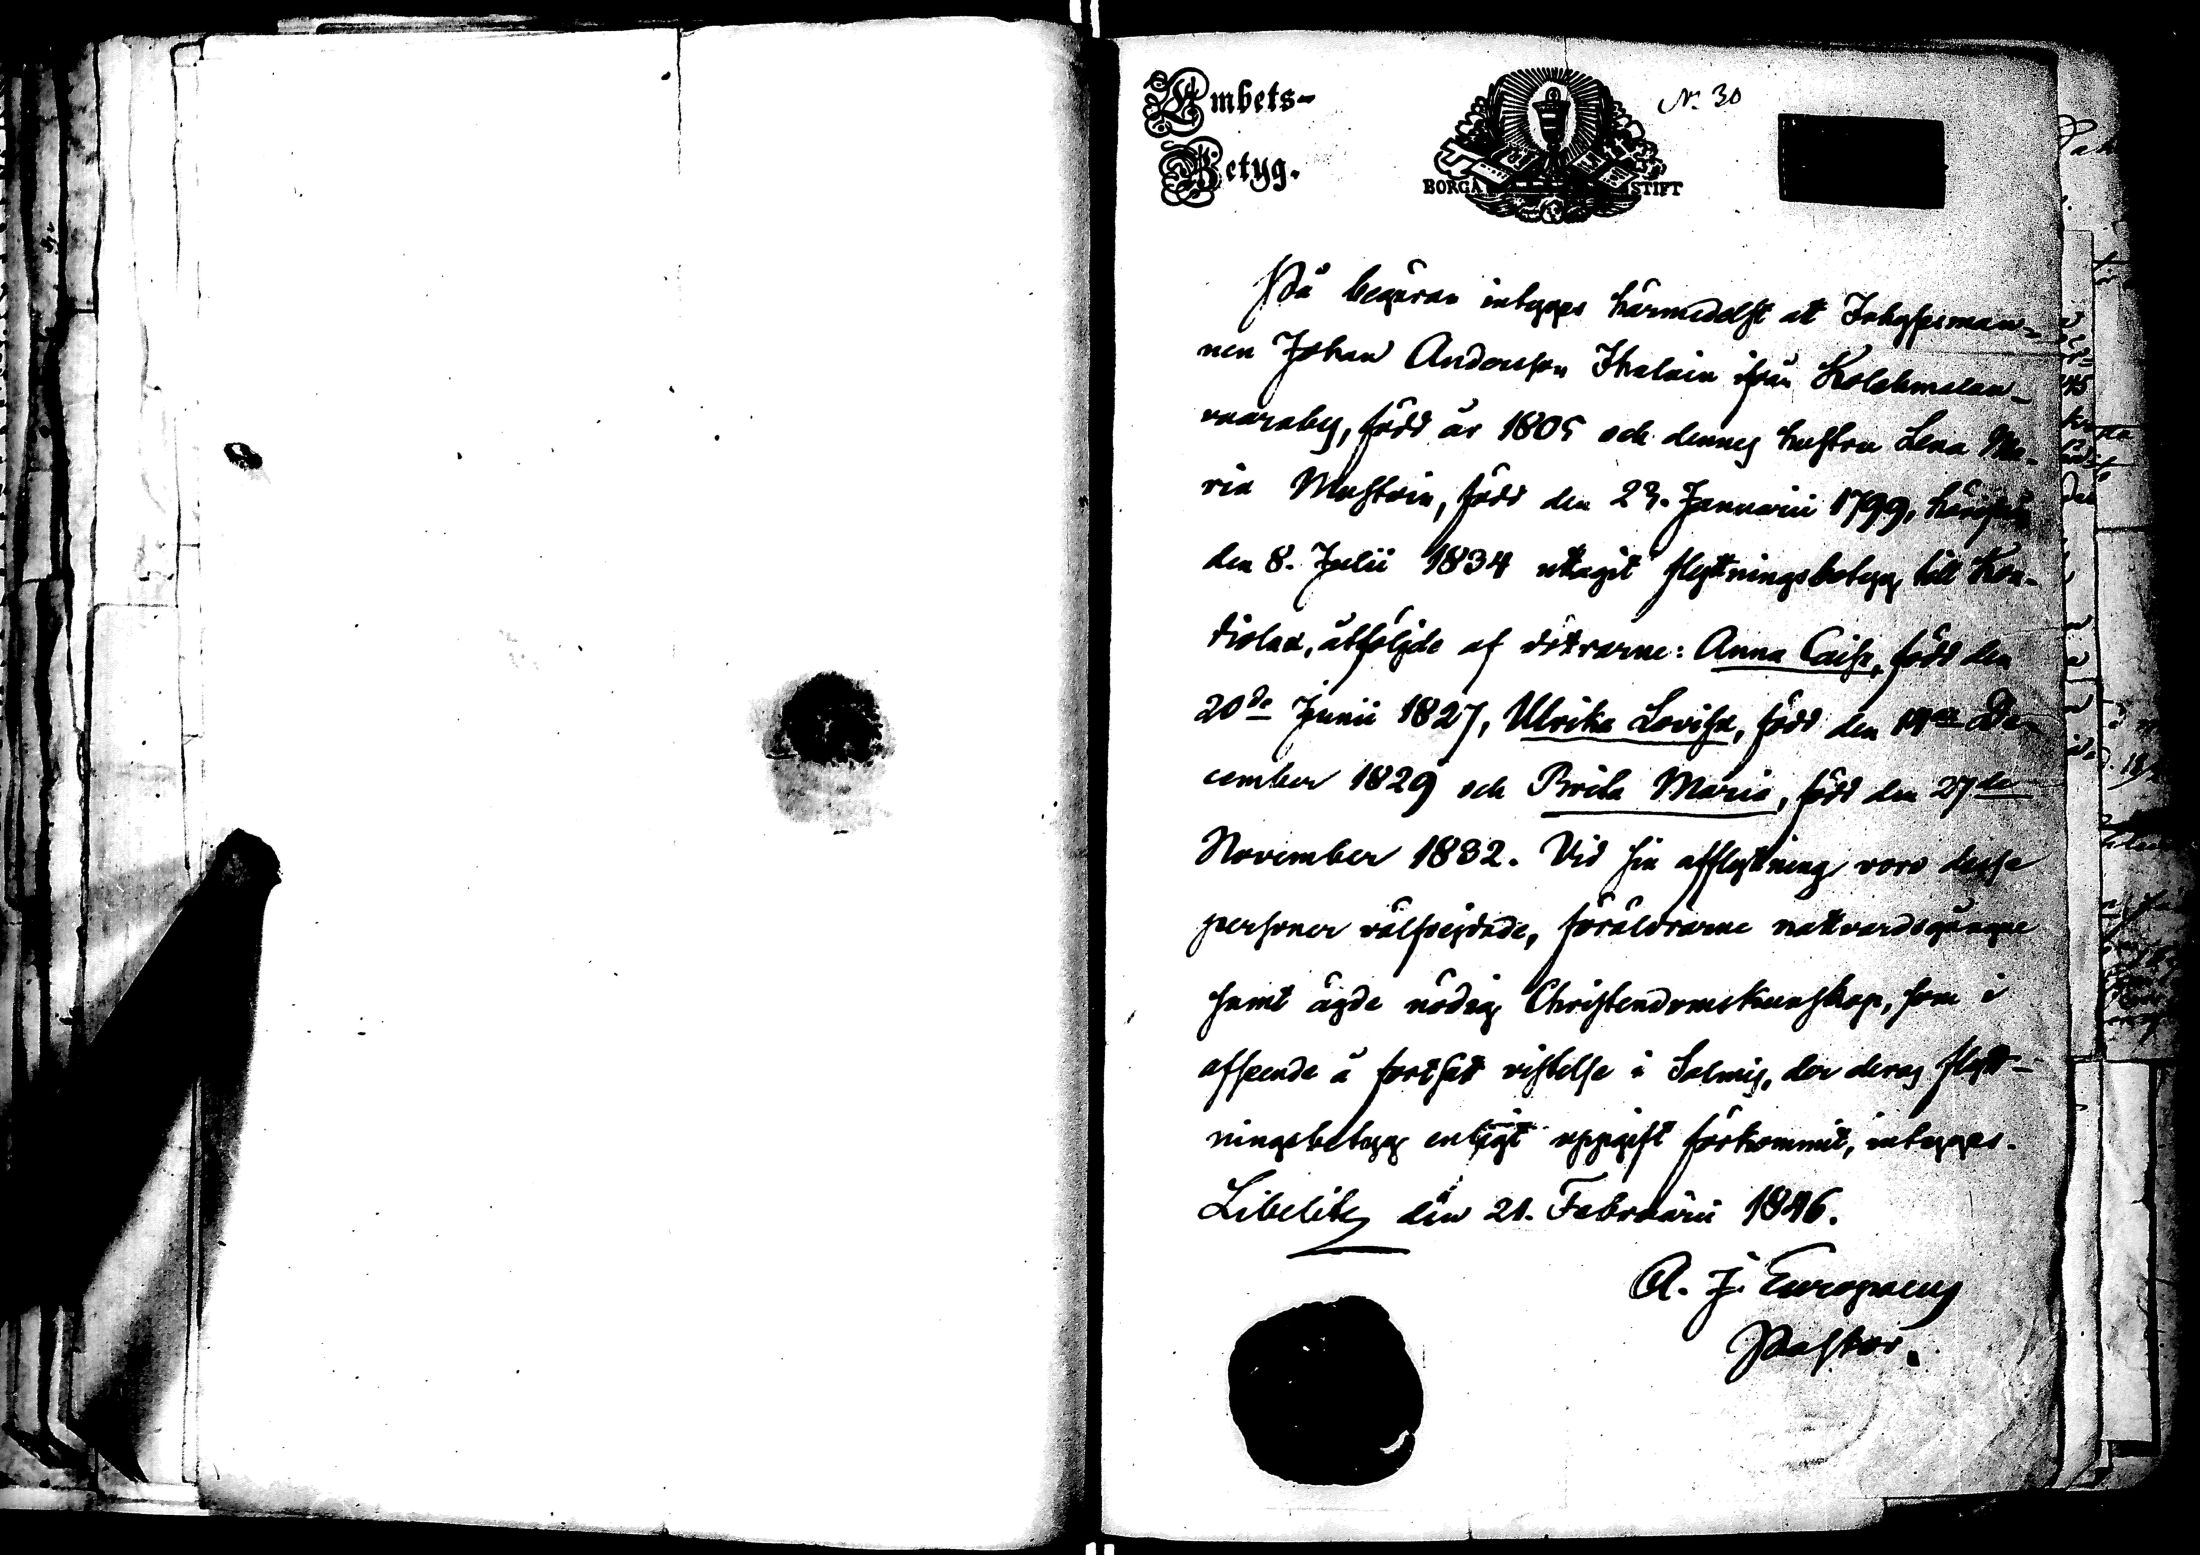 Embets-
Betyg.
BORGÅ STIFT
No 30
På begäran intygas härmedelst att Inhysesman-
nen Johan Andersson Ikalain ifrån Kolehmalan-
vaaraby, född år 1805 och dennes hustru Lena Ma-
ria Mustoin, född den 23. Januarii 1799, härifrån
den 8. Julii 1834 uttagit flyttningsbetyg till Kon-
tiolax, åtföljde af döttrarne: Anna Caisa, född den
20de Junii 1827, Ulrika Lovisa, född den 14de De-
cember 1829 och Brita Maria, född den 27de
November 1832. Vid sin afflyttning voro desse
personer välfrejdade, föräldrarne nattvardsgängne
samt ägde nödig Christendomskunskap, som i
afseende å fortsatt vistelse i Salmis, der deras flytt-
ningsbetyg enligt uppgift förkommit, intygas.
Libelits den 21. Februarii 1846.
A. J. Europaeus
Pastor.